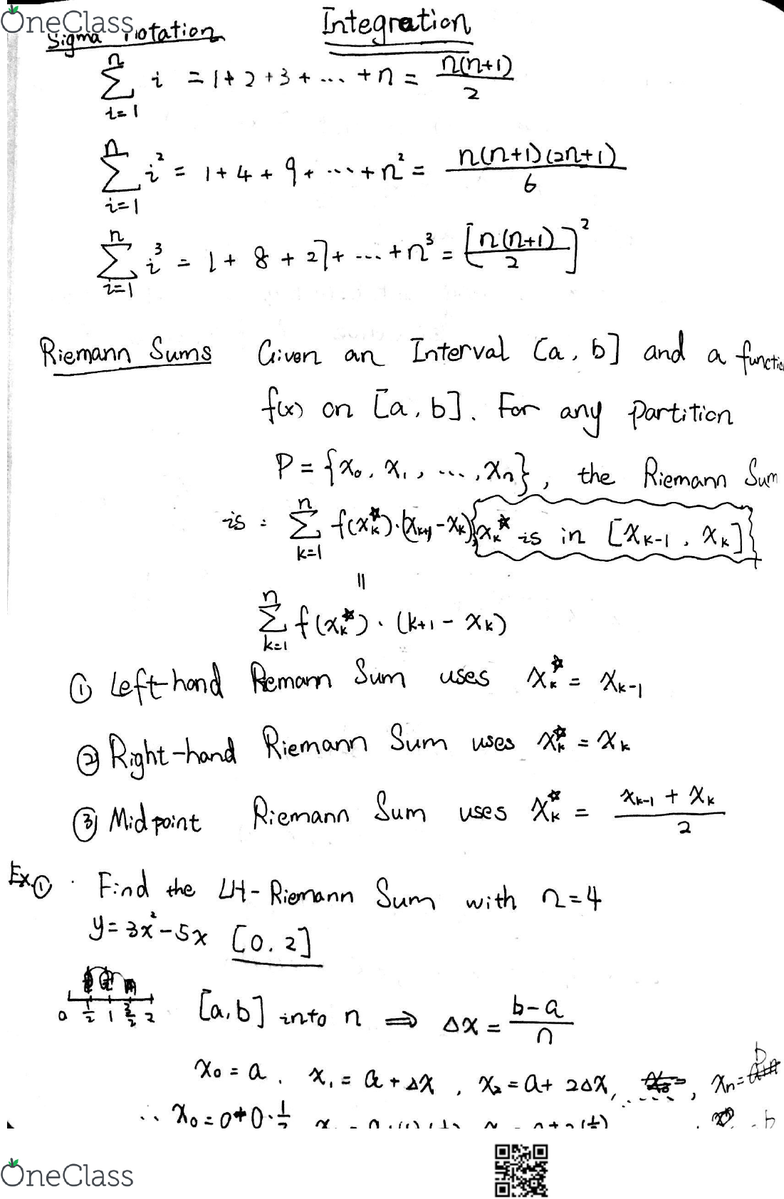 OneClass
Integration
Sigma notation
n ∑ i=1 i = 1+2+3+...+n = n(n+1)/2
n ∑ i=1 i² = 1+4+9+...+n² = n(n+1)(2n+1)/6
n ∑ i=1 i³ = 1+8+27+...+n³ = [n(n+1)/2]²
Riemann Sums Given an Interval [a, b] and a functio
f(x) on [a, b]. For any partition
P = {x₀, x₁, ..., xₙ}, the Riemann Sum
is : n ∑ k=1 f(xₖ*)·(xₖ₊₁-xₖ), xₖ* is in [xₖ₋₁, xₖ]
||
n ∑ k=1 f(xₖ*)·(k+1 - xₖ)
① Left-hand Remann Sum uses xₖ* = xₖ₋₁
② Right-hand Riemann Sum uses xₖ* = xₖ
③ Midpoint Riemann Sum uses xₖ* = (xₖ₋₁ + xₖ)/2
Ex① . Find the LH-Riemann Sum with n=4
y=3x²-5x [0.2]
0 1/2 1 3/2 2
[a,b] into n ⇒ Δx = (b-a)/n
x₀ = a, x₁ = a+Δx, x₂ = a+2Δx, ....., xₙ = b
∴ x₀=0+0·1/2
OneClass